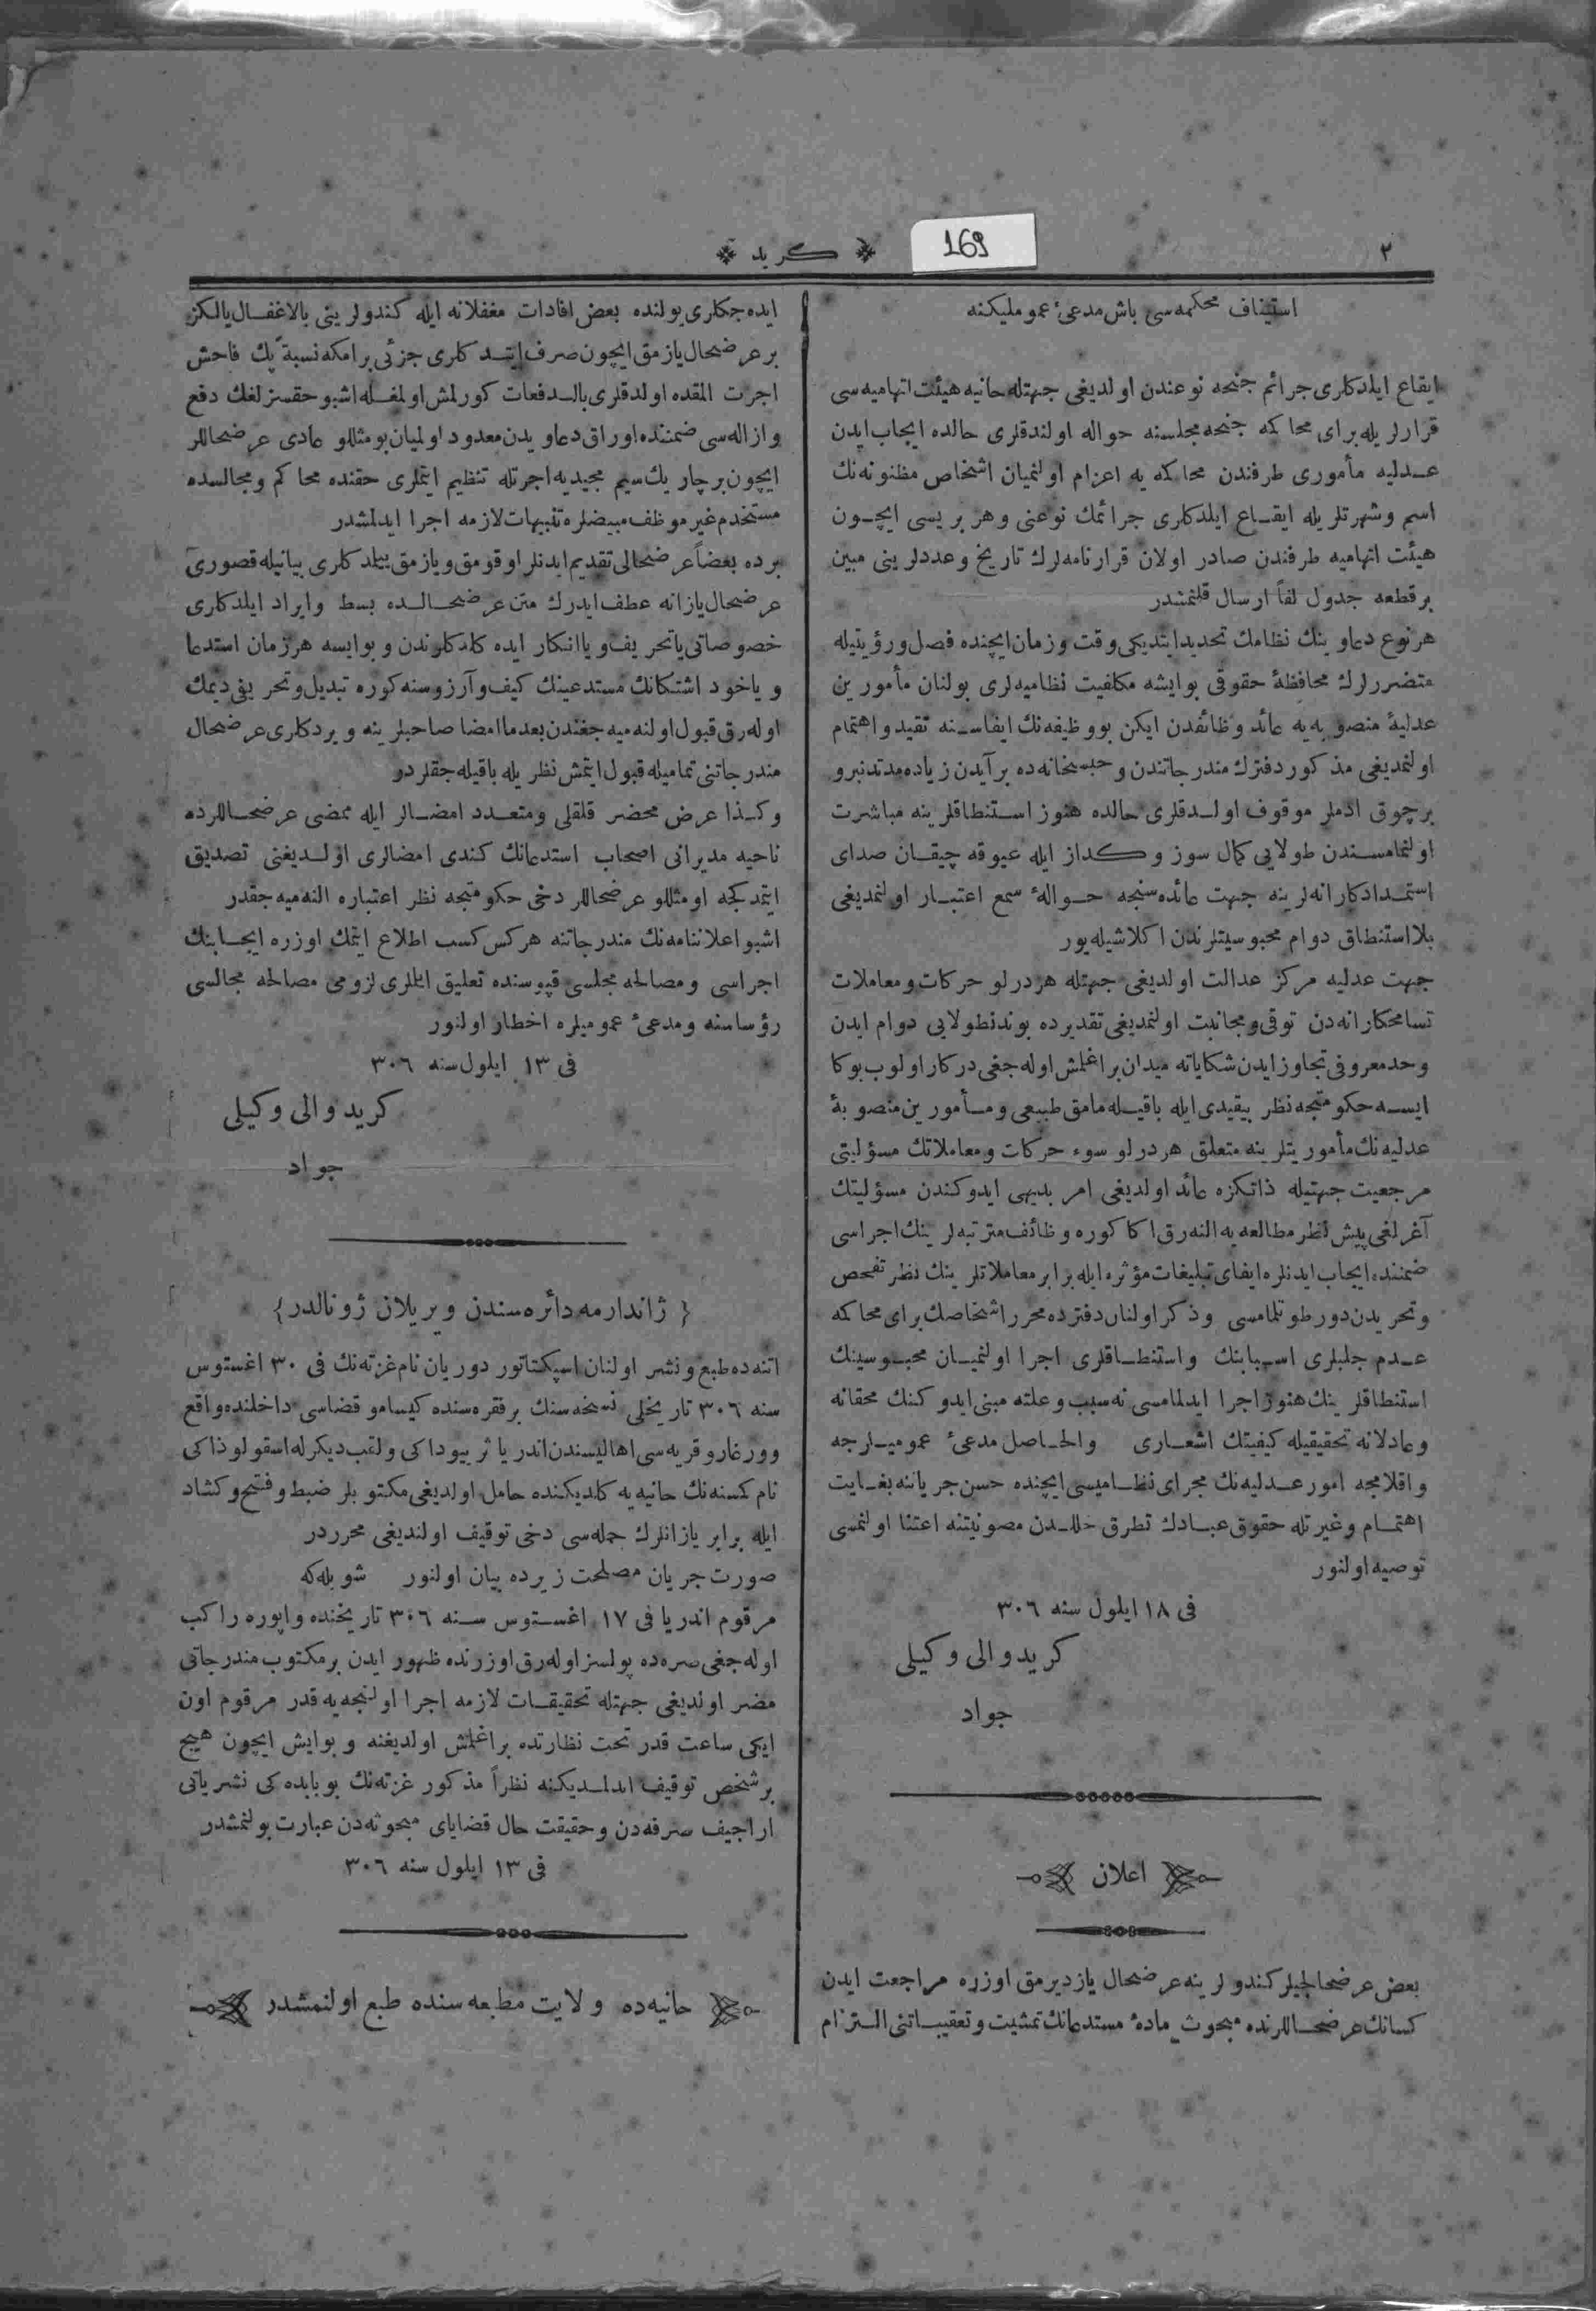 ٢
169
كريد
استيناف محكمه‌سى باش مدعئ عموميلكنه
ايقاع ايلدكلرى جرائم جنحه نوعندن اولديغى جهتله حانيه هيئت اتهاميه‌سى
قرارلريله براى محاكه جنحه مجلسنه حواله اولندقلرى حالده ايجاب ايدن
عدليه مأمورى طرفندن محاكه يه اعزام اولنميان اشخاص مظنونه‌نك
اسم وشهرتلريله ايقاع ايلدكلرى جرائمك نوعنى وهر بريسى ايچون
هيئت اتهاميه طرفندن صادر اولان قرارنامه‌لرك تاريخ وعددلرينى مبين
برقطعه جدول لفاً ارسال قلنمشدر
هرنوع دعاوينك نظامك تحديد ايتديكى وقت وزمان ايچنده فصل ورؤيتيله
متضررلرك محافظهٔ حقوقى بوايشه مكلفيت نظاميه‌لرى بولنان مأمورين
عدليهٔ منصوبه‌يه عائد وظائفدن ايكن بووظيفه‌نك ايفاسنه تقيد واهتمام
اولنمديغى مذكور دفترك مندرجاتندن وحبسخانه‌ده برآيدن زياده مدتدنبرو
برچوق ادملر موقوف اولدقلرى حالده هنوز استنطاقلرينه مباشرت
اولنمامسندن طولايى كمال سوز وكداز ايله عيوقه چيقان صداى
استمدادكارانه‌لرينه جهت عائده‌سنجه حوالهٔ سمع اعتبار اولنمديغى
بلااستنطاق دوام محبوسيتلرندن اكلاشيله‌يور
جهت عدليه مركز عدالت اولديغى جهتله هردرلو حركات ومعاملات
تسامحكارانه‌دن توقى ومجانبت اولنمديغى تقديرده بوندنطولايى دوام ايدن
وحد معروفى تجاوز ايدن شكاياته ميدان براغلمش اوله‌جغى دركار اولوب بوكا
ايسه حكومتجه نظر بيقيدى ايله باقيله‌مامق طبيعى ومأمورين منصوبهٔ
عدليه‌نك مأموريتلرينه متعلق هردرلو سوء حركات ومعاملاتك مسؤليتى
مرجعيت جهتيله ذاتكزه عائد اولديغى امر بديهى ايدوكندن مسؤليتك
آغرلغى پيش نظر مطالعه‌يه النه‌رق اكا كوره وظائف مترتبه‌لرينك اجراسى
ضمننده ايجاب ايدنلره ايفاى تبليغات مؤثره ايله برابر معاملاتلرينك نظر تفحص
وتحريدن دور طوتلمامسى وذكر اولنان دفترده محرر اشخاصك براى محاكه
عدم جلبلرى اسبابنك واستنطاقلرى اجرا اولنميان محبوسينك
استنطاقلرينك هنوز اجرا ايدلمامسى نه سبب وعلته مبنى ايدوكنك محقانه
وعادلانه تحقيقيله كيفيتك اشعارى والحاصل مدعئ عموميلرجه
واقلامجه امور عدليه‌نك مجراى نظاميسى ايچنده حسن جرياننه بغايت
اهتمام وغيرتله حقوق عبادك تطرق خللدن مصونيتنه اعتنا اولنمسى
توصيه اولنور
فى ١٨ ايلول سنه ٣٠٦
كريد والى وكيلى
جواد
اعلان
بعض عرضحالجيلر كندولرينه عرضحال يازديرمق اوزره مراجعت ايدن
كسانك عرضحاللرنده مبحوث مادهٔ مستدعانك تمشيت وتعقيباتنى التزام
ايده‌جكلرى يولنده بعض افادات مغفلانه ايله كندولرينى بالاغفال يالكز
برعرضحال يازمق ايچون صرف ايتدكلرى جزئى برامكه نسبةً پك فاحش
اجرت المقده اولدقلرى بالدفعات كورلمش اولمغله اشبو حقسزلغك دفع
وازاله‌سى ضمننده اوراق دعاويدن معدود اولميان بومثللو عادى عرضحاللر
ايچون برچاريك سيم مجيديه اجرتله تنظيم ايتملرى حقنده محاكم ومجالسده
مستخدم غيرموظف مبيضلره تنبيهات لازمه اجرا ايدلمشدر
برده بعضاً عرضحالى تقديم ايدنلر اوقومق ويازمق بيلمدكلرى بيانيله قصورى
عرضحال يازانه عطف ايدرك متن عرضحالده بسط وايراد ايلدكلرى
خصوصاتى ياتحريف ويا انكار ايده كلدكلرندن وبوايسه هرزمان استدعا
وياخود اشتكانك مستدعينك كيف وآرزوسنه كوره تبديل وتحريفى ديمك
اوله‌رق قبول اولنه‌ميه‌جغندن بعدما امضا صاحبلرينه ويردكلرى عرضحال
مندرجاتنى تماميله قبول ايتمش نظريله باقيله‌جقلردو
وكذا عرض محضر قلقلى ومتعدد امضالر ايله ممضى عرضحاللرده
ناحيه مديرانى اصحاب استدعانك كندى امضالرى اولديغنى تصديق
ايتمدكجه اومثللو عرضحاللر دخى حكومتجه نظر اعتباره النه‌ميه‌جقدر
اشبو اعلاننامه‌نك مندرجاتنه هركس كسب اطلاع ايتمك اوزره ايجابنك
اجراسى ومصالحه مجلسى قپوسنده تعليق ايتملرى لزومى مصالحه مجالسى
رؤساسنه ومدعئ عموميلره اخطار اولنور
فى ١٣ ايلول سنه ٣٠٦
كريد والى وكيلى
جواد
{ ژاندارمه دائره‌سندن ويريلان ژونالدر }
اتنه‌ده طبع ونشر اولنان اسپكتاتور دوريان نام غزته‌نك فى ٣٠ اغستوس
سنه ٣٠٦ تاريخلى نسخه‌سنك برفقره‌سنده كيسامو قضاسى داخلنده واقع
وورغارو قريه‌سى اهاليسندن اندريا ثريبوداكى ولقب ديكرله اسقولوذاكى
نام كمسنه‌نك حانيه‌يه كلديكنده حامل اولديغى مكتوبلر ضبط وفتح وكشاد
ايله برابر يازانلرك جمله‌سى دخى توقيف اولنديغى محرردر
صورت جريان مصلحت زيرده بيان اولنور شويله‌كه
مرقوم اندريا فى ١٧ اغستوس سنه ٣٠٦ تاريخنده واپوره راكب
اوله‌جغى صره‌ده پولسز اوله‌رق اوزرنده ظهور ايدن برمكتوب مندرجاتى
مضر اولديغى جهتله تحقيقات لازمه اجرا اولنجه‌يه قدر مرقوم اون
ايكى ساعت قدر تحت نظارتده براغلمش اولديغنه وبوايش ايچون هيچ
برشخص توقيف ايدلمديكنه نظراً مذكور غزته‌نك بوبابده‌كى نشرياتى
اراجيف صرفه‌دن وحقيقت حال قضاياى مبحوثه‌دن عبارت بولنمشدر
فى ١٣ ايلول سنه ٣٠٦
حانيه‌ده ولايت مطبعه‌سنده طبع اولنمشدر